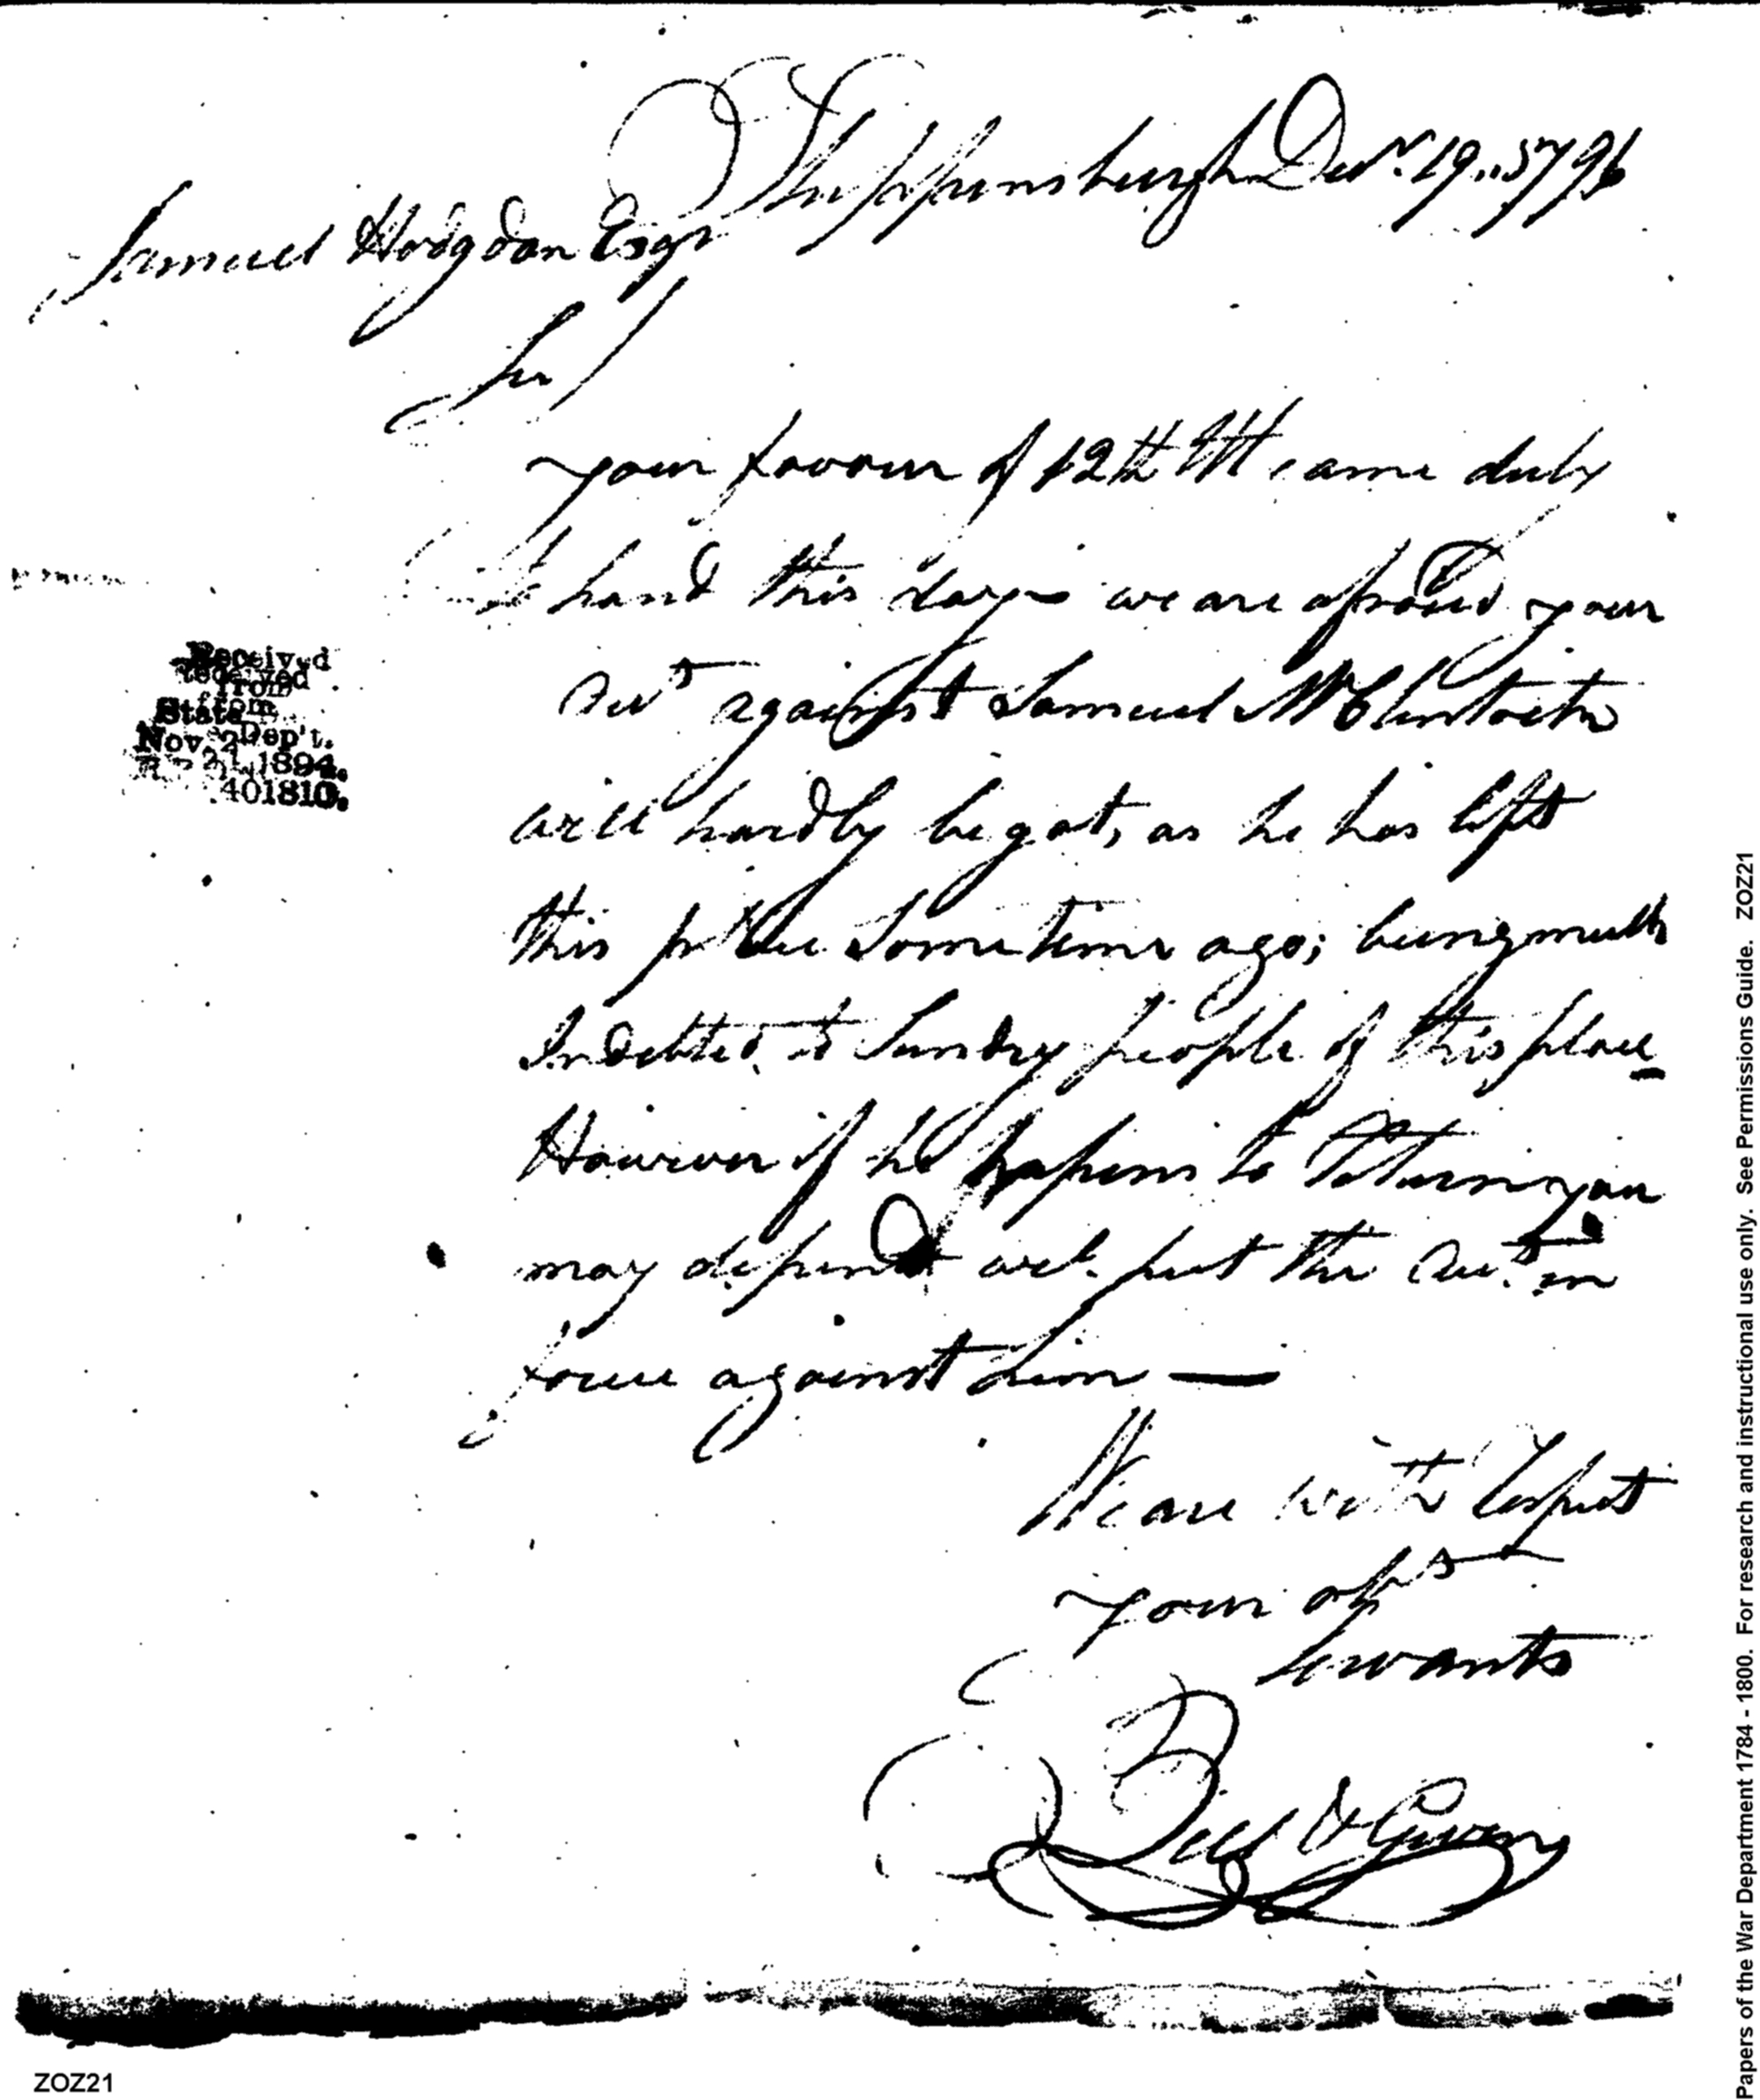 Shippensburgh Decr. 19..1796
Samuel Hodgdon Esqr
Sir/
your favour of 12th came duly
to hand this day - we are afraid your
Acct against Samuel McClintock
will hardly be got, as he has left
this place Sometime ago; being much
Indebted to Sundry people of this place
However if he hapens to Return you
may depend will put the Acct in
force against him —
We are with Respect
your obt
Servants
& Givens
Received
from
State Dep't.
Nov. 1894.
401810.
Papers of the War Department 1784 - 1800. For research and instructional use only. See Permissions Guide. ZOZ21
ZOZ21